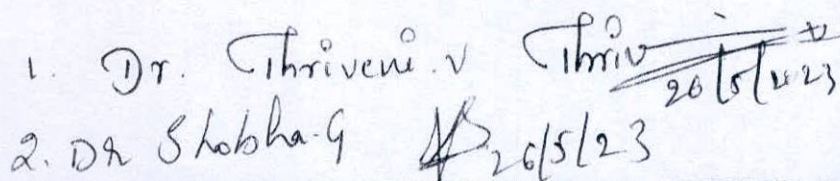 1. Dr. Thriveni.V Thriv 26/5/2023
2. Dr Shobha.G 26/5/23